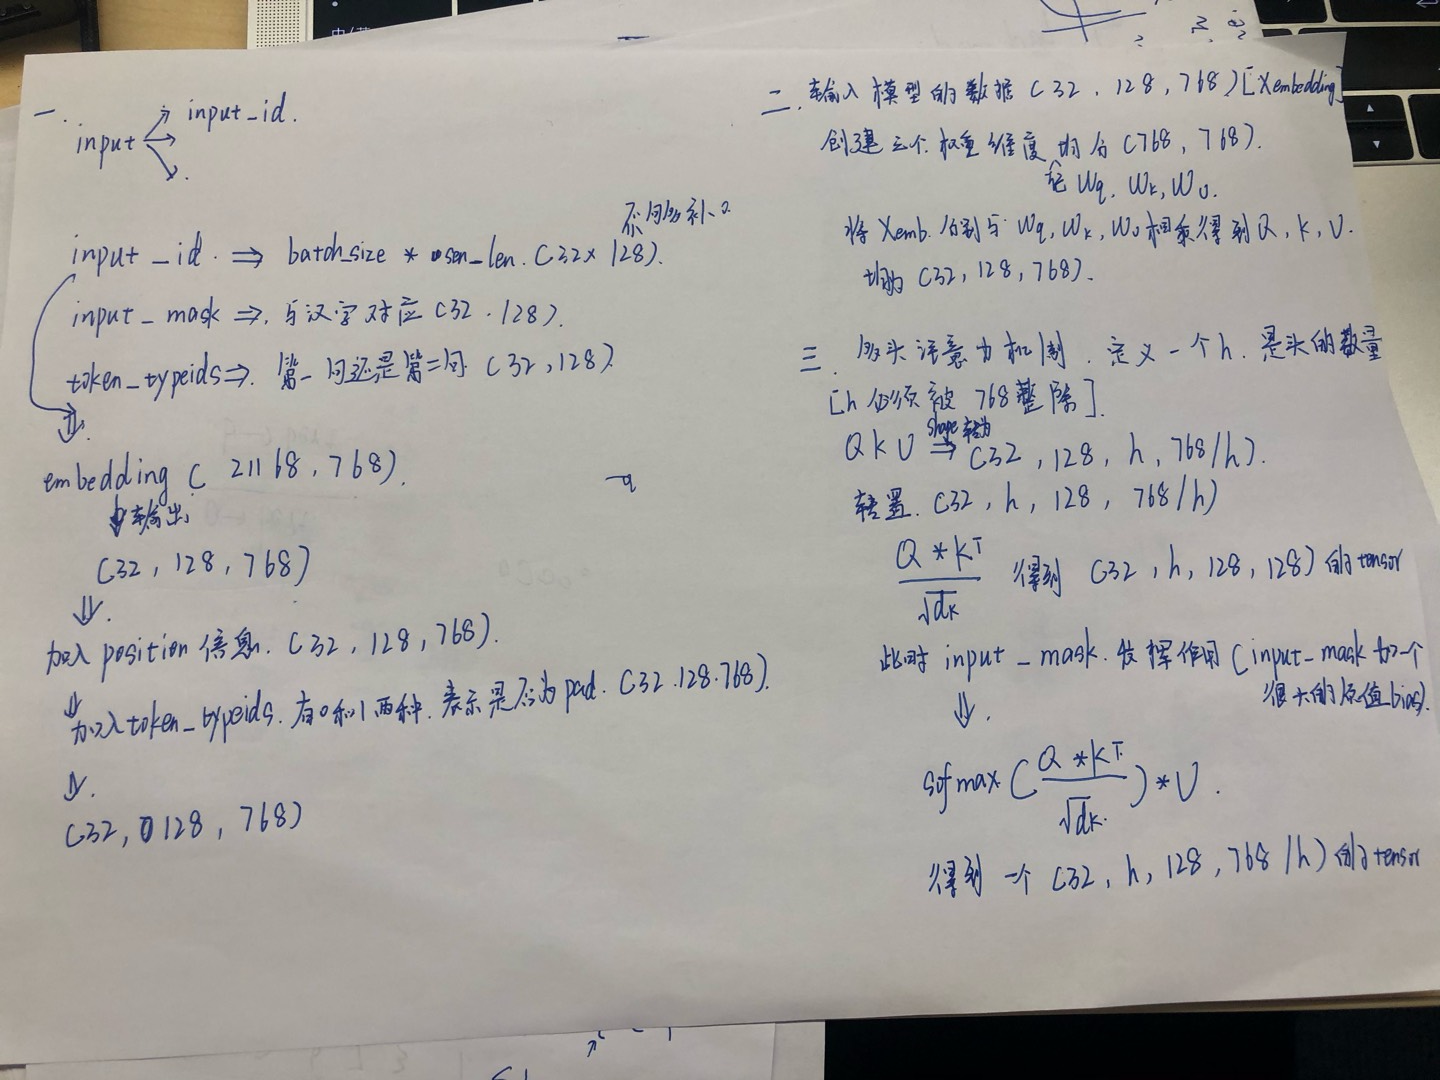 一.
input → input_id.
不够补0
input_id. ⇒ batch_size * sen_len. (32×128).
input_mask ⇒. 与汉字对应 (32.128).
token_typeids ⇒. 第一句还是第二句. (32,128).
⇓.
embedding ( 21168, 768).
↓ 输出
(32, 128, 768)
⇓.
加入 position 信息. (32, 128, 768).
⇓
加入 token_typeids. 有0和1两种. 表示是否为pad. (32.128.768).
⇓.
(32, 128, 768)
二. 输入模型的数据 (32, 128, 768) [Xembedding]
创建三个权重维度均为 (768, 768).
Wq, Wk, Wv.
将 Xemb. 分别与 Wq, Wk, Wv 相乘得到 Q, K, V.
均为 (32, 128, 768).
三. 多头注意力机制. 定义一个h. 是头的数量
[h 必须被 768 整除].
Q K V shape 转为 ⇒ (32, 128, h, 768/h).
转置. (32, h, 128, 768/h)
Q * K^T / √dk 得到 (32, h, 128, 128) 的 tensor
此时 input_mask. 发挥作用 (input_mask 加一个
很大的负值 bias).
⇓.
sofmax ( Q * K^T / √dk. ) * V.
得到一个 (32, h, 128, 768/h) 的 tensor